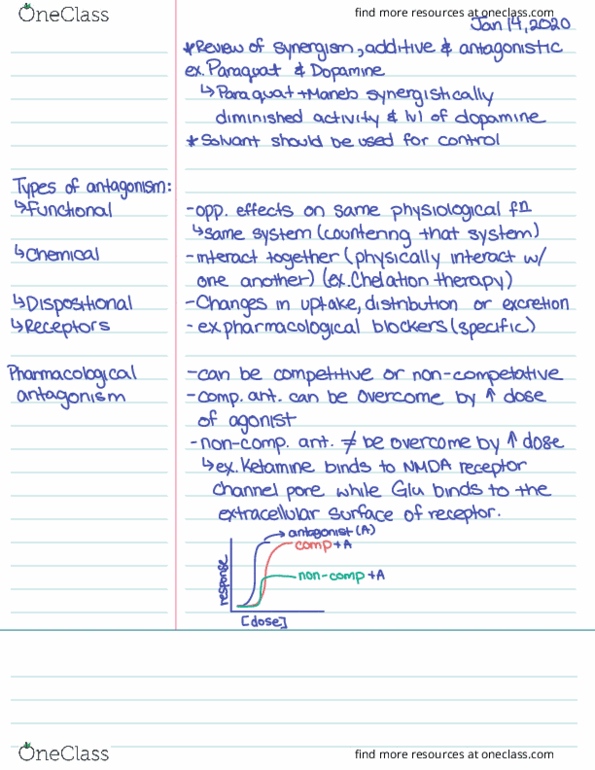 OneClass
find more resources at oneclass.com
Jan 14, 2020
*Review of synergism, additive & antagonistic
ex. Paraquat & Dopamine
↳Paraquat+Maneb synergistically
diminished activity & lvl of dopamine
*Solvant should be used for control
Types of antagonism:
↳functional
-opp. effects on same physiological fn
↳same system (countering that system)
↳Chemical
-interact together (physically interact w/
one another) (ex. Chelation therapy)
↳Dispositional
-Changes in uptake, distribution or excretion
↳Receptors
-ex pharmacological blockers (specific)
Pharmacological
antagonism
-can be competitive or non-competative
-comp. ant. can be overcome by ↑ dose
of agonist
-non-comp. ant. ≠ be overcome by ↑ dose
↳ex. Ketamine binds to NMDA receptor
channel pore while Glu binds to the
extracellular surface of receptor.
→antagonist (A)
comp+A
non-comp+A
response
[dose]
OneClass
find more resources at oneclass.com